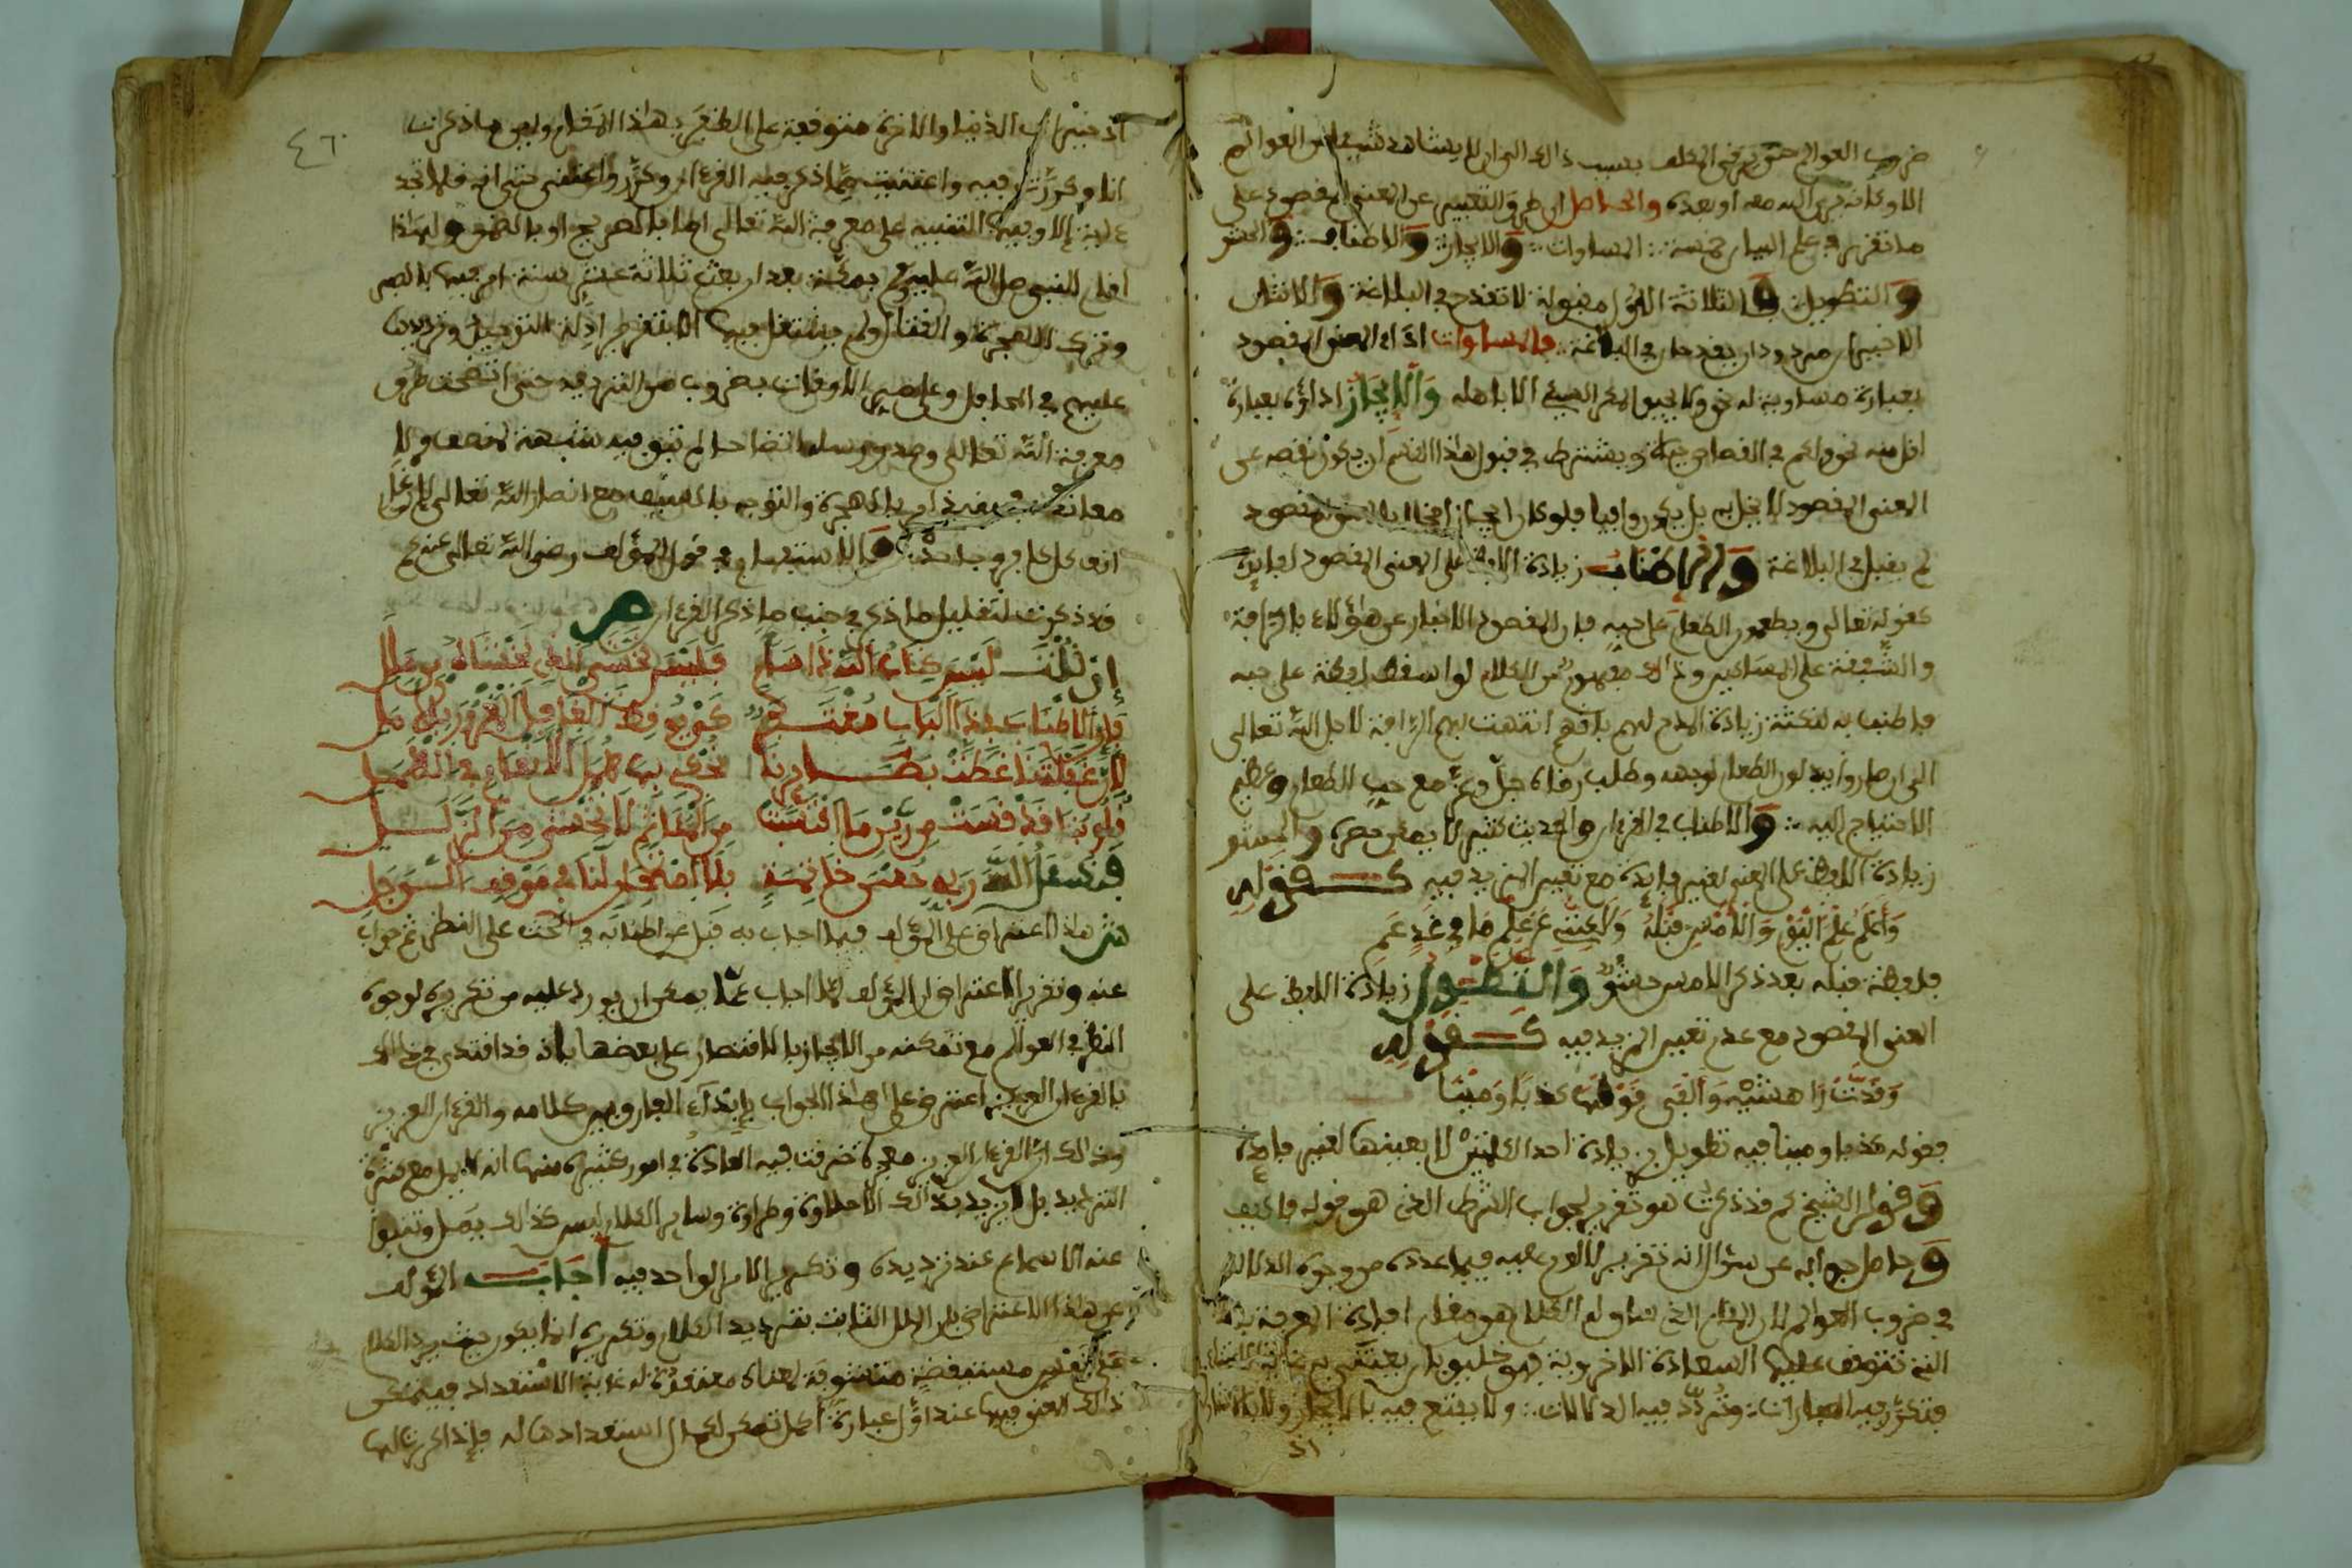 ضروب العوالم حتى يترقى المكلف بسبب ذالك الى ان لا يشاهد شيئا من العوالم
الا وكانه يرى الله معه او بعده والحاصل ان طرق التعبير عن المعنى المقصود على
ما تقرر في علم البيان خمسة المساوات والايجاز والاطناب والحشو
والتطويل والثلاثة الاول مقبولة لا تقدح في البلاغة والاثنان
الاخيران مردودان يقدحان في البلاغة فالمساوات اداء المعنى المقصود
بعبارة مساوية له نحو ولا يحيق المكر السيئ الا باهله والايجاز اداؤه بعبارة
اقل منه نحو ولكم في القصاص حياة ويشترط في قبول هذا القسم ان يكون نقصه عن
المعنى المقصود لا يخل به بل يكون وافيا فلو كان ايجازا مخلا بالمعنى المقصود
لم يقبل في البلاغة والاطناب زيادة اللفظ على المعنى المقصود لفايدة
كقوله تعالى ويطعمون الطعام على حبه فان المقصود الاخبار عن هؤلاء بالرافة
والشفقة على المساكين وذالك مفهوم من الكلام لو اسقط لفظة على حبه
فاطنب به لنكتة زيادة المدح لهم بانهم انتهت بهم الرافة لاجل الله تعالى
الى ان صاروا يبذلون الطعام لوجهه وطلب رضاه جل وعز مع حب الطعام وعظيم
الاحتياج اليه والاطناب في القرءان والحديث كثير لا يمكن حصره والحشو
زيادة اللفظ على المعنى لغير فايدة مع تعيين المزيد فيه كقوله
وأعلم علم اليوم والامس قبله ولكنني عن علم ما في غد عم
فلفظة قبله بعد ذكر الامس حشو والتطويل زيادة اللفظ على
المعنى المقصود مع عدم تعيين المزيد فيه كقوله
وقددت راهشيه وألفى قولها كذبا ومينا
فقوله كذبا ومينا فيه تطويل بزيادة احد الكلمتين لا بعينها لغير فايدة
وقول الشيخ كم قد ذكرت هو تقرير لجواب الشرط الذي هو قوله فاكيف
وحاصل جوابه عن سؤال انه تقرير لا لوم عليه فيما عدده من وجوه الدلالة
في ضروب العوالم لان المقام الذي تناوله الكلام هو مقام افادة المعرفة بالله
التي تتوقف عليها السعادة الاخروية فهو خليق بان يعتنى به غاية الاعتناء
فتكرر فيه العبارات وتردد فيه الدلالات ولا يقتنع فيه بالايجاز ولا بالاشارة
اذ
٤٦
اذ خيرات الدنيا والاخرة متوقفة على الظفر بهذا المقام وليس ما ذكرت
انا وكررت فيه واعتنيت مما ذكر فيه القرءان وكرر واعتنى حتى انه فلا تجد
ءاية إلا وفيها التنبيه على معرفة الله تعالى اما بالصريح او بالضمن ولهذا
اقام النبي صلى الله عليه وسلم بمكة بعد ان بعث ثلاثة عشر سنة امر فيها بالصبر
وترك الهجرة والقتال ولم يشتغل فيها الا بتقرير ادلة التوحيد وترديدها
عليهم في المحافل وعلى ممر الاوقات بضروب من الترديد حتى اتضحت طرق
معرفة الله تعالى وصدق رسله اتضاحا لم تبق فيه شبهة لمنصف ولا
معاند فحينئذ امر بالهجرة والتوجه بالسيف مع انصار الله تعالى لارغام
انف كل كافر وجاحد والاستفهام في قول المؤلف رضي الله تعالى عنه كم
قد ذكرت لتقليل ما ذكر في جنب ما ذكر القرءان ص
إن قلت ليس كتاب الله ذا ملل فليس نخشى الذي نخشاه من ملل
قلنا لاطناب هذا الباب مفتقر
لأن غفلتنا غطت بصائرنا
قلوبنا قد قست من رين ما اكتسبت من المئاثم لا تخشى من الزلل
فنسئل الله ربي حسن خاتمة بلا افتضاح لنا في موقف السوجل
ش هذا اعتراض على المؤلف فيما اجاب به قبل عن اطنابه في الحث على النظر ثم جواب
عنه وتقرير الاعتراض ان المؤلف لما اجاب عما يمكن ان يورد عليه من تكريره لوجوه
النظر في العوالم مع تمكنه من الايجاز بالاقتصار على بعضها بانه قد اقتدى في ذالك
بالقرءان العزيز اعترض على هذا الجواب بابداء الفارق بين كلامه والقرءان العزيز
وذالك ان القرءان العزيز معجزة خرقت فيه العادة في امور كثيرة منها انه لا يمل مع كثرة
الترديد بل لا يزيد بذالك الا حلاوة وطراوة وساير الكلام ليس كذالك يمل وتنبوا
عنه الاسماع عند ترديده وتكرير الامر الواحد فيه أجاب المؤلف
عن هذا الاعتراض بان الملل الثابت بترديد الكلام وتكريره انما يكون حيث يرد الكلام
على نفس مستيقظة متشوقة لمعناه مفتقرة له غاية الاستعداد فيتمكن
ذالك المعنى فيها عند اول عبارة اكمل تمكن لكمال استعدادها له فإذا كرر عليها